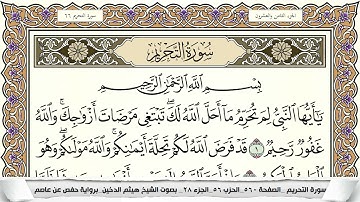 الجزء الثامن والعشرون
سورة التحريم ٦٦
سورة التحريم
بسم الله الرحمن الرحيم
يَٰٓأَيُّهَا ٱلنَّبِيُّ لِمَ تُحَرِّمُ مَآ أَحَلَّ ٱللَّهُ لَكَۖ تَبۡتَغِي مَرۡضَاتَ أَزۡوَٰجِكَۚ وَٱللَّهُ
غَفُورٞ رَّحِيمٞ ١ قَدۡ فَرَضَ ٱللَّهُ لَكُمۡ تَحِلَّةَ أَيۡمَٰنِكُمۡۚ وَٱللَّهُ مَوۡلَىٰكُمۡۖ وَهُوَ
سورة التحريم _ الصفحة ٥٦٠ _ الحزب ٥٦ _ الجزء ٢٨ _ بصوت الشيخ هيثم الدخين برواية حفص عن عاصم